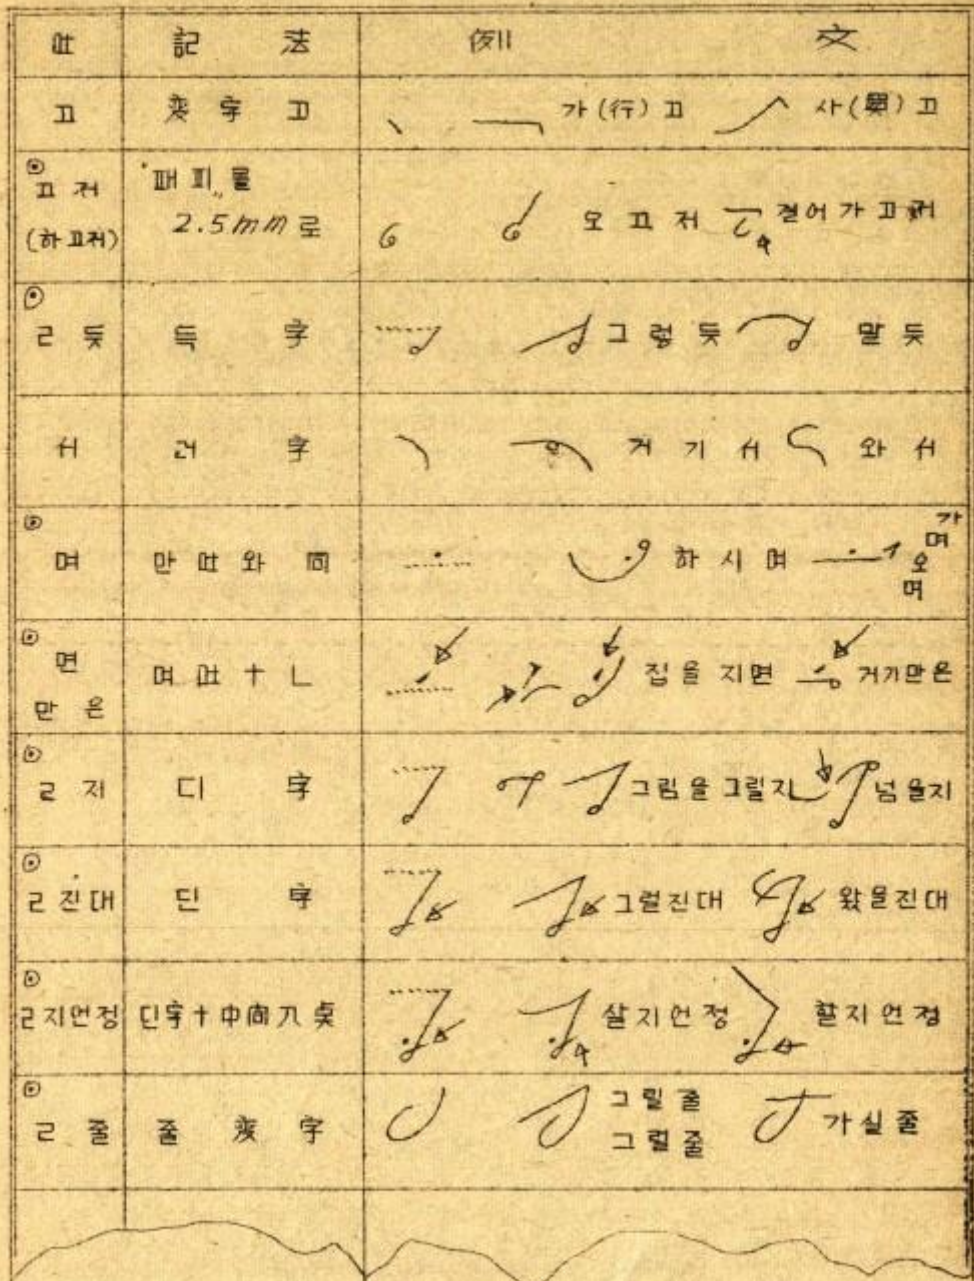 吐 記法 例文
고 変字 고 가(行)고 사(買)고
고저 "패피"를
(하고저) 2.5mm로 오고저 걸어가고저
ㄹ듯 득字 그렇듯 말듯
서 러字 거기서 와서
며 만吐와 同 하시며 가며
오며
면 며吐+ㄴ 집을 지면 거기만은
만은
ㄹ지 디字 그림을 그릴지 넘을지
ㄹ진대 딘字 그럴진대 왔을진대
ㄹ지언정 딘字+中間入点 살지언정 할지언정
ㄹ줄 줄変字 그릴줄 가실줄
그럴줄